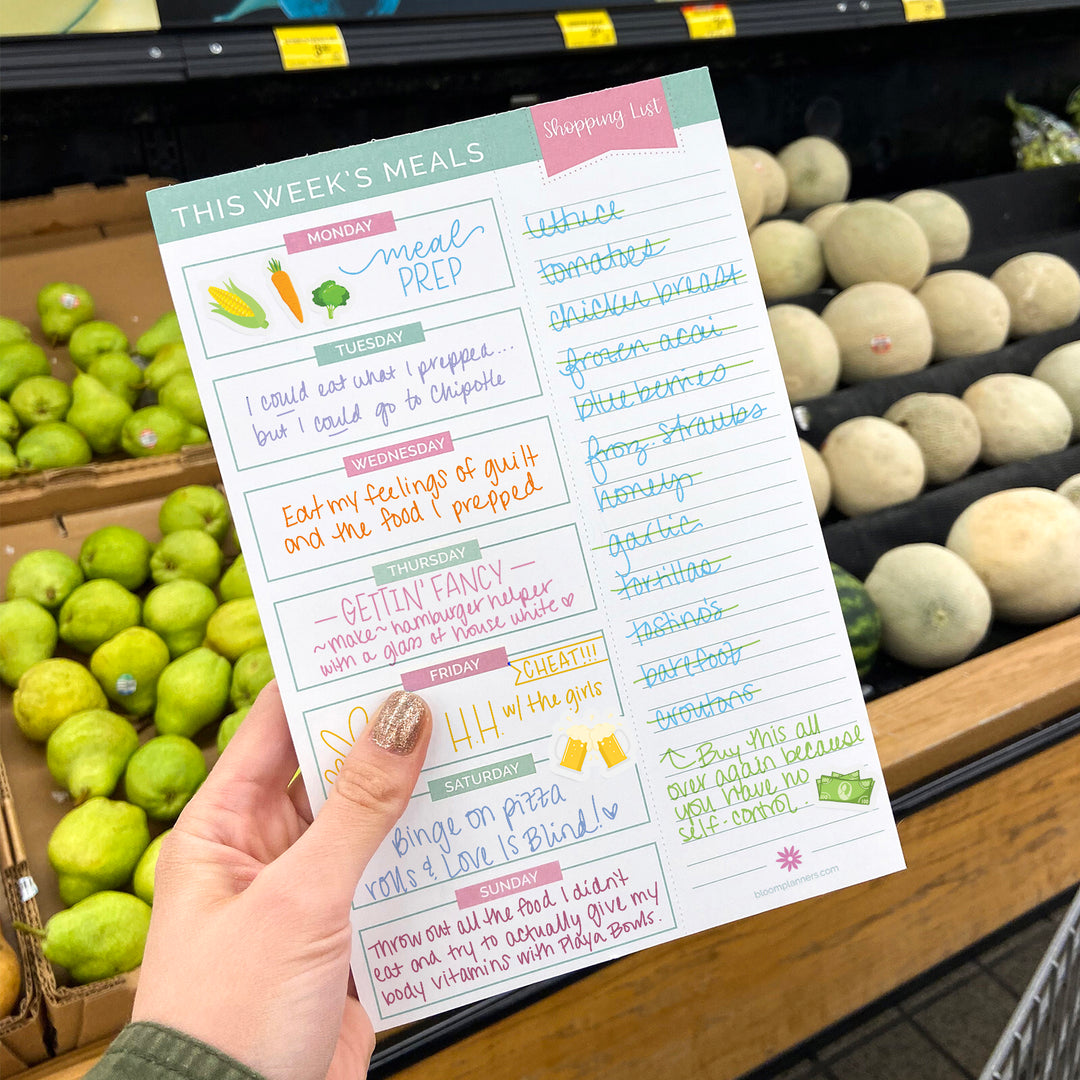 THIS WEEK'S MEALS
MONDAY
meal
PREP
TUESDAY
I could eat what I prepped...
but I could go to Chipotle
WEDNESDAY
Eat my feelings of guilt
and the food I prepped
THURSDAY
— GETTIN' FANCY —
~make~ hamburger helper
with a glass of house white ♡
FRIDAY
CHEAT!!!
H.H. w/ the girls
SATURDAY
Binge on pizza
rolls & Love Is Blind! ♡
SUNDAY
Throw out all the food I didn't
eat and try to actually give my
body vitamins with Playa Bowls.
Shopping List
lettuce
tomatoes
chicken breast
frozen acai
blueberries
froz. straubs
honey
garlic
tortillas
tostino's
barefoot
croutons
↑ Buy this all
over again because
you have no
self-control.
bloomplanners.com